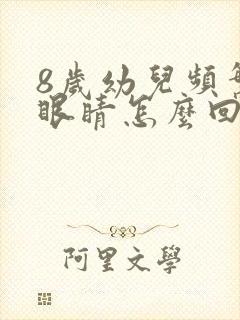 8歲幼兒頻繁
眼睛怎麼回
阿里文學